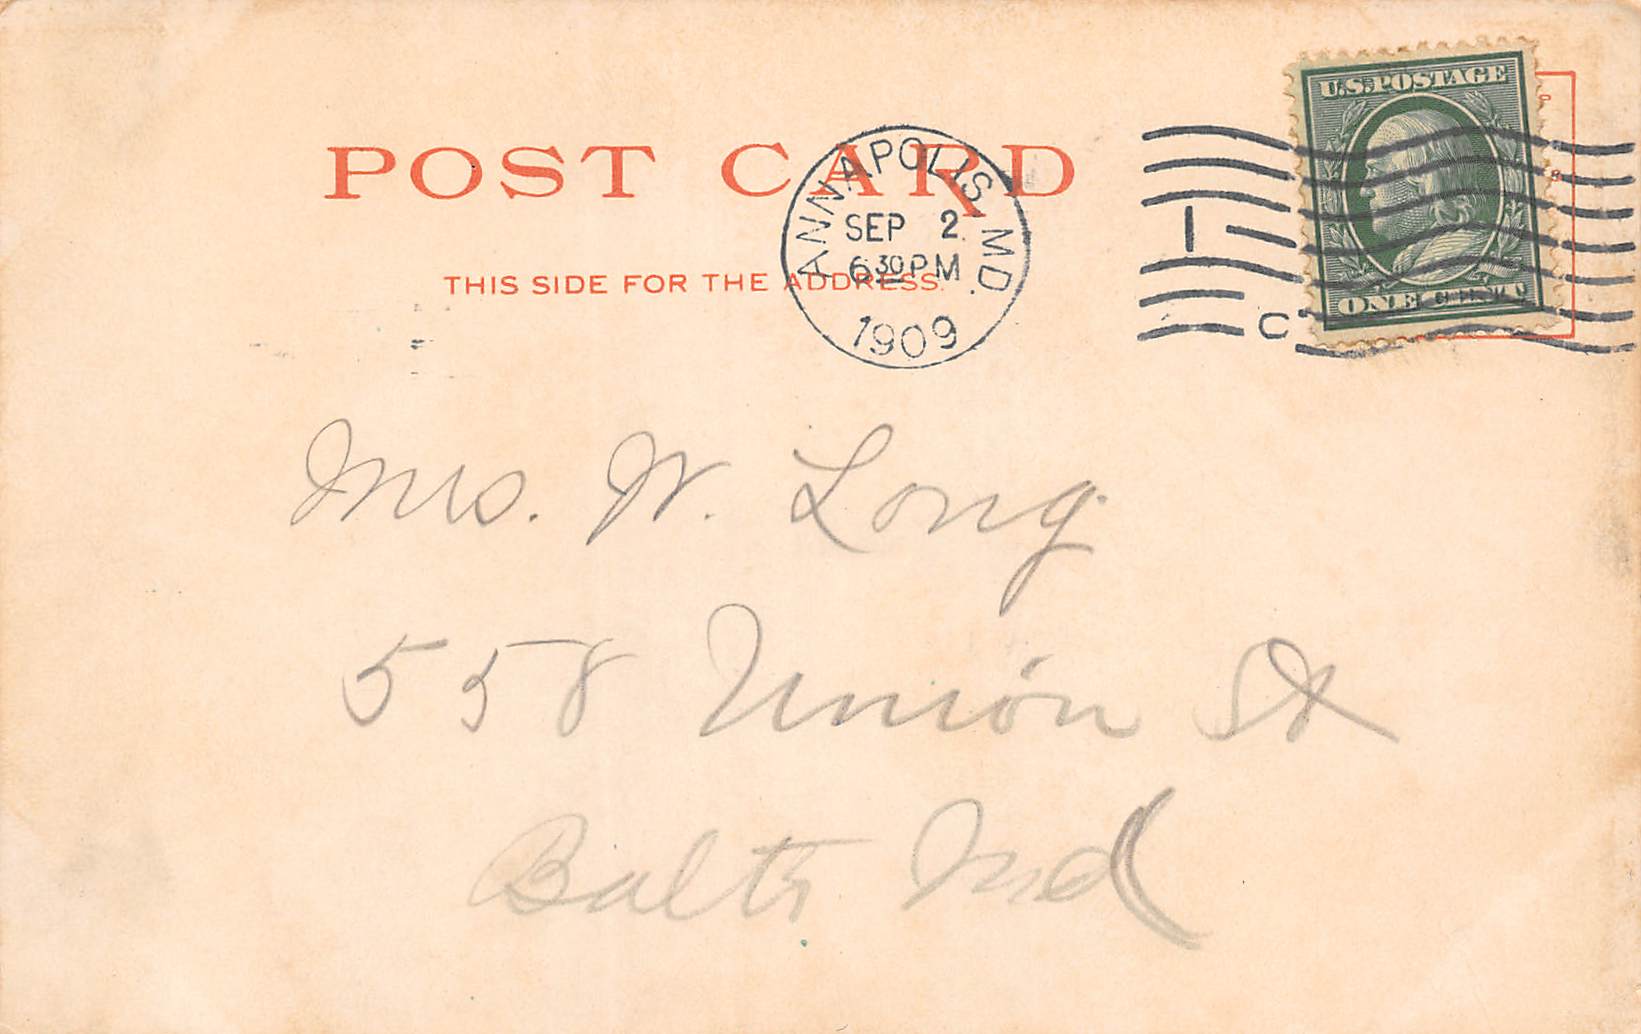 POST CARD
THIS SIDE FOR THE ADDRESS.
ANNAPOLIS, MD.
SEP 2
6 30 PM
1909
1
C
U.S. POSTAGE
ONE CENT
Mrs. W. Long
558 Union St
Balto Md